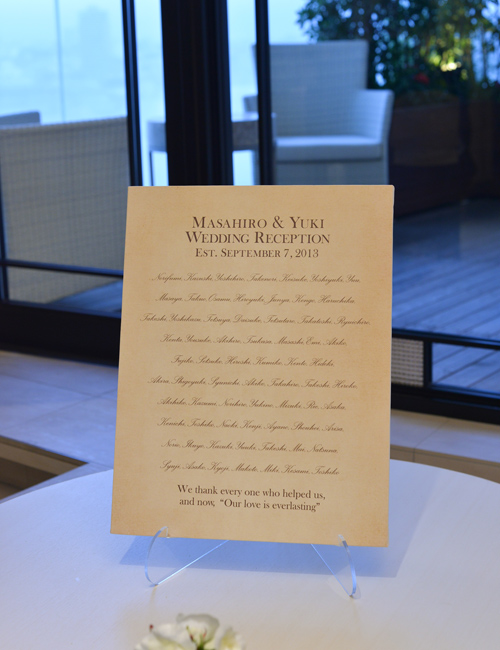 MASAHIRO & YUKI
WEDDING RECEPTION
EST. SEPTEMBER 7, 2013
Kaneshi, Yoshihiro, Takanori, Keisuke, Yoshiyuki, Yuu,
Manaya, Takao, Osamu, Hiroyuki, Junya, Kenji, Haruchika,
Takeshi, Yoshikazu, Tetsuya, Daisuke, Tetsutaro, Takatoshi, Ryuichiro,
Kenta, Yousuke, Akihiro, Tsubasa, Masashi, Emi, Akiko,
Fujiko, Setsuko, Hiroshi, Kumiko, Kento, Hideki,
Akira, Shigeyuki, Akiko, Takahiro, Takashi, Hiroko,
Akihiko, Kasumi, Norihiro, Yukino, Misuki, Rie, Asuka,
Kenichi, Toshiko, Naoki, Kenji, Ayano, Shizuka, Arisa,
Ikuyo, Kazuki, Yuuki, Takeshi, Miu, Natsumi,
Syuji, Asako, Kyoji, Makoto, Miki, Kosuma, Toshiko
We thank every one who helped us,
and now, "Our love is everlasting"